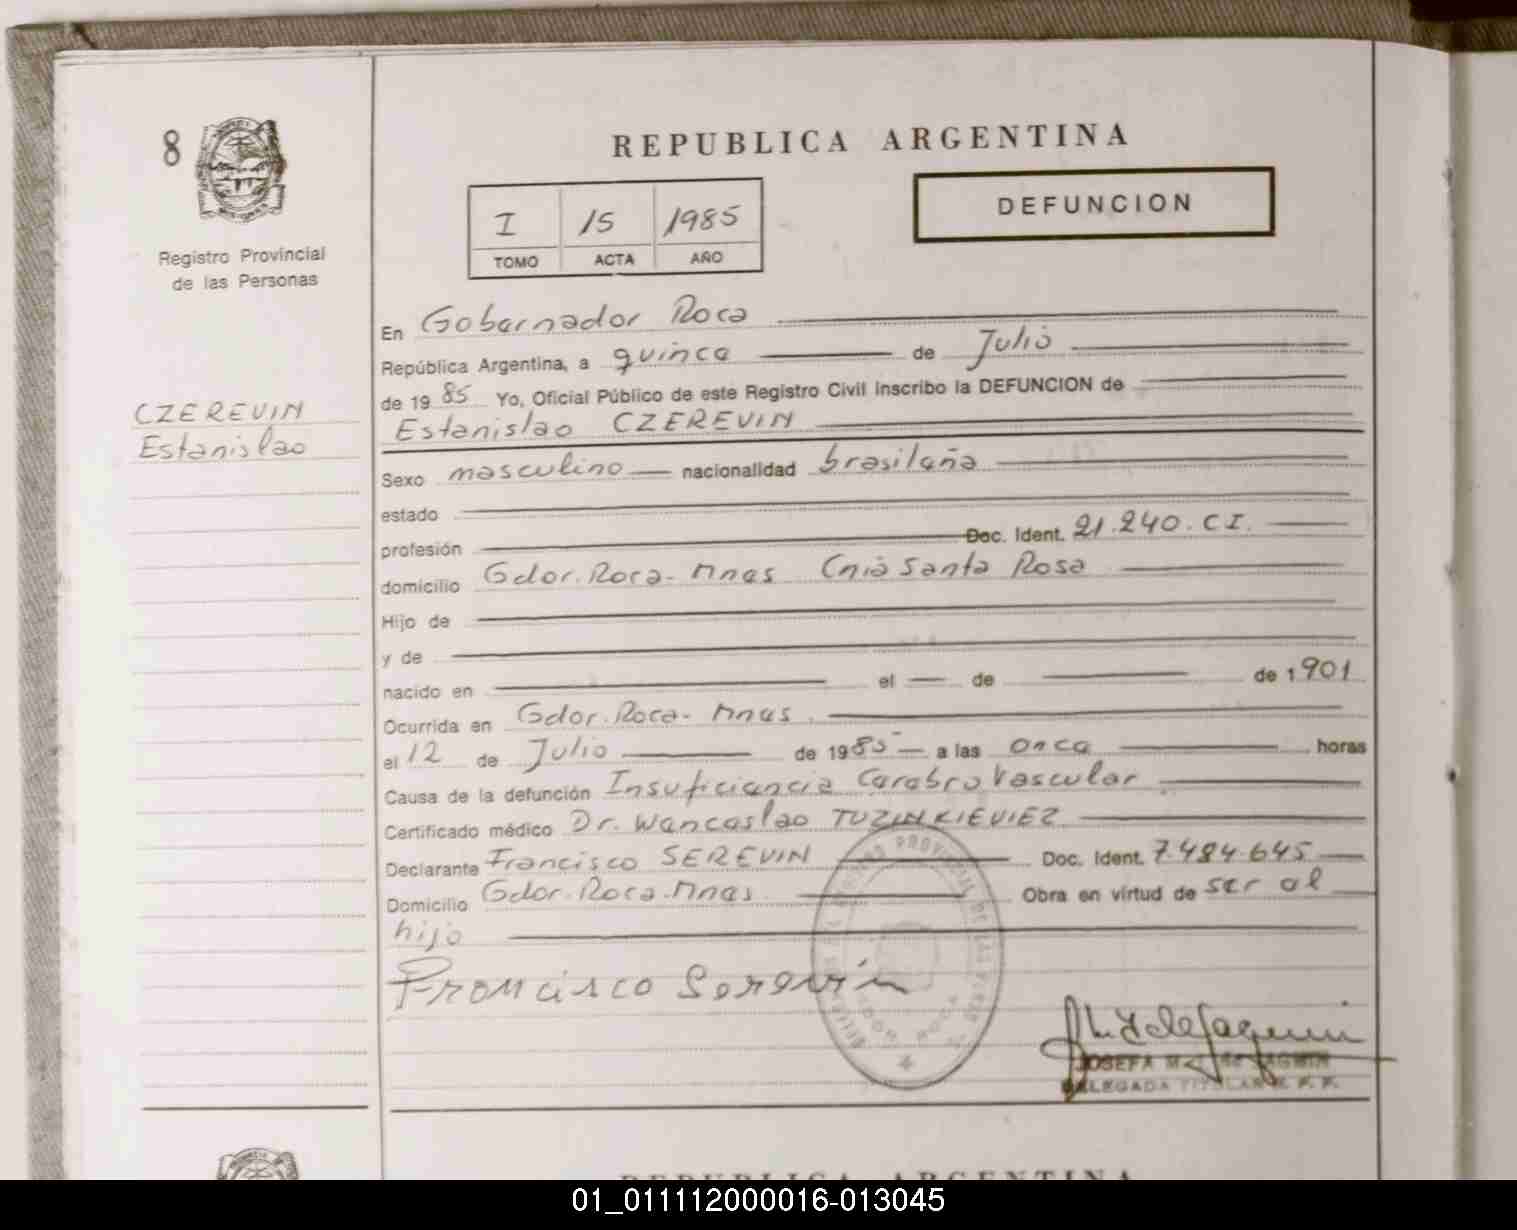 8
Registro Provincial
de las Personas
CZEREVIN
Estanislao
REPUBLICA ARGENTINA
DEFUNCION
I 15 1985
TOMO ACTA AÑO
En Gobernador Roca
República Argentina, a quince de Julio
de 1985 Yo, Oficial Público de este Registro Civil inscribo la DEFUNCION de
Estanislao CZEREVIN
Sexo masculino nacionalidad brasileña
estado
profesión Doc. Ident. 21.240. C I.
domicilio Gdor. Roca- Mnes Cniá Santa Rosa
Hijo de
y de
nacido en el de de 1901
Ocurrida en Gdor. Roca- Mnes.
el 12 de Julio de 1985 a las once horas
Causa de la defunción Insuficiencia Cerebro Vascular
Certificado médico Dr. Wenceslao TUZINKIEVIEZ
Declarante Francisco SEREVIN Doc. Ident. 7.484.645
Domicilio Gdor. Roca- Mnes Obra en virtud de ser el
hijo
Francisco Serevin
GDOR. ROCA
JOSEFA
DELEGADA TITULAR R. P. P.
REPUBLICA ARGENTINA
01_011112000016-013045